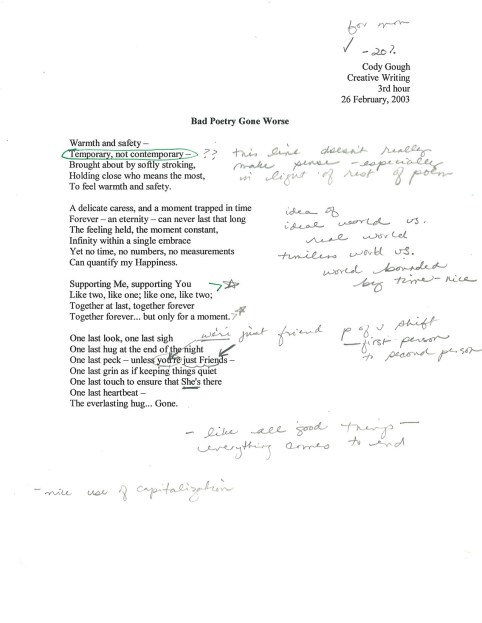 for mom
✓ -20%
Cody Gough
Creative Writing
3rd hour
26 February, 2003
Bad Poetry Gone Worse
Warmth and safety –
Temporary, not contemporary – ?? this line doesn't really
make sense - especially
in light of rest of poem
Brought about by softly stroking,
Holding close who means the most,
To feel warmth and safety.
A delicate caress, and a moment trapped in time
Forever – an eternity – can never last that long
The feeling held, the moment constant,
Infinity within a single embrace
Yet no time, no numbers, no measurements
Can quantify my Happiness.
idea of
ideal world vs.
real world
timeless world vs.
world bounded
by time - nice
Supporting Me, supporting You
Like two, like one; like one, like two;
Together at last, together forever
Together forever... but only for a moment.
One last look, one last sigh
One last hug at the end of the night
One last peck – unless you're just Friends –
One last grin as if keeping things quiet
One last touch to ensure that She's there
One last heartbeat –
The everlasting hug... Gone.
we're just friend
p of v shift
- first person
to second person
- like all good things -
everything comes to end
- nice use of capitalization